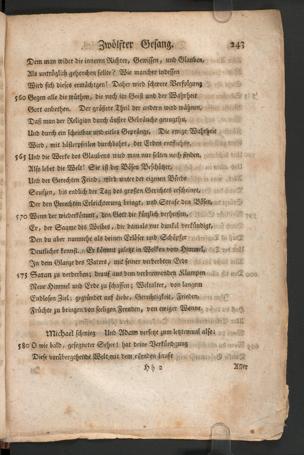 Zwölfter Gesang. 243
Dem man wider die inneren Richter, Gewissen, und Glauben,
Als untrüglich gehorchen sollte? Wie mancher indessen
Wird sich dieses ermächtigen! Daher wird schwere Verfolgung
560 Gegen alle die wüthen, die noch im Geist und der Wahrheit
Gott anbethen. Der größere Theil der andern wird wähnen,
Daß man der Religion durch äußre Gebräuche genugthu,
Und durch ein scheinbar und eitles Gepränge. Die ewige Wahrheit
Wird, mit lästerpfeilen durchbohrt, der Erden entfliehn,
565 Und die Werke des Glaubens wird man nur selten noch finden.
Also lebet die Welt! Sie ist der Bösen Beschützer,
Und der Gerechten Feind, wird unter der eignen Bürde
Seufzen, bis endlich der Tag des großen Gerichtes erscheinet,
Der den Gerechten Erleichterung bringt, und Strafe den Bösen,
570 Wenn der wiederkömmt, den Gott dir kürzlich verheißen,
Er, der Saame des Weibes, dir damals nur dunkel verkündigt,
Den du aber nunmehr als deinen Erlöser und Schöpfer
Deutlicher kennst. Er kömmt zuletzt in Wolken vom Himmel,
In dem Glanze des Vaters, mit seiner verderbten Erde
575 Satan zu verderben; draus aus dem verbrennenden Klumpen
Neue Himmel und Erde zu schaffen; Weltalter, von langem
Endlosen Ziel; gegründet auf Liebe, Gerechtigkeit, Frieden,
Früchte zu bringen von seligen Freuden, von ewiger Wonne.
Michael schwieg. Und Adam versetzt zum letztenmal also:
580 O wie bald, gesegneter Seher; hat deine Verkündgung
Diese vorübergehende Welt mit dem
H h 2 Aller